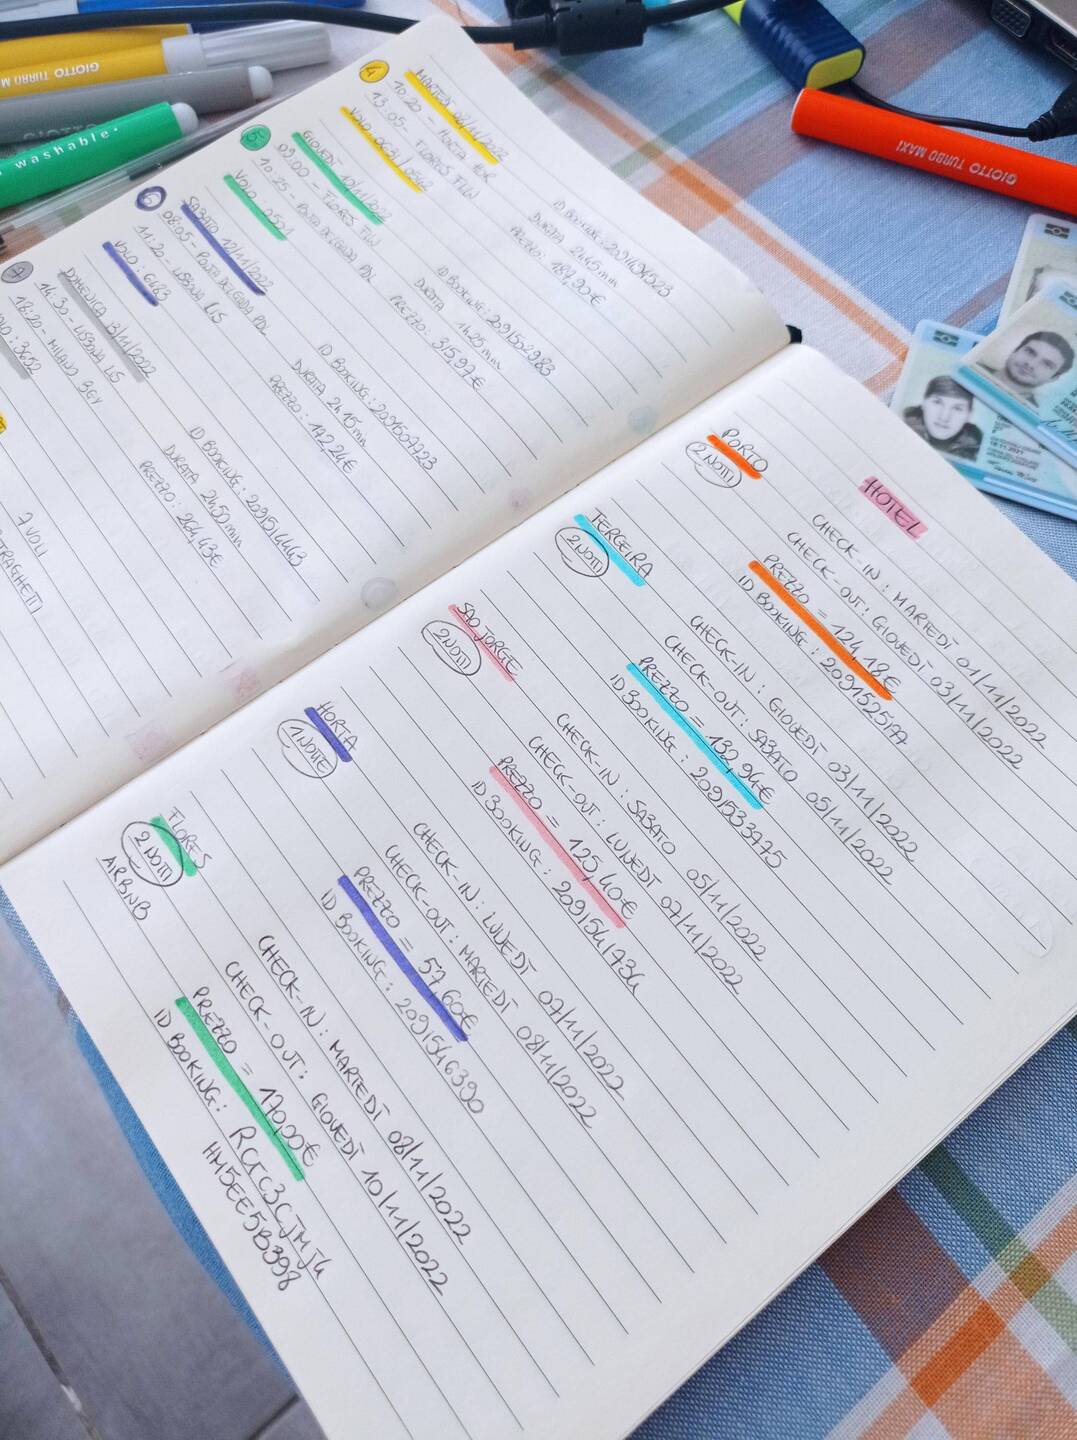 GIOTTO TURBO M
GIOTTO
washable.
GIOTTO TURBO MAXI
4
MARTEDÌ 08/11/2022
10:20 - HORTA HOR
13:05 - FLORES FLW
VOLO
ID BOOKING: 2091494523
DURATA 2h45 min
PREZZO: 189,90€
5
GIOVEDÌ 10/11/2022
09:00 - FLORES FLW
10:25 - PONTA DELGADA PDL
VOLO
ID BOOKING: 2091552983
DURATA 1h25 min
PREZZO: 315,97€
6
SABATO 12/11/2022
08:05 - PONTA DELGADA PDL
11:20 - LISBONA LIS
VOLO: 6463
ID BOOKING: 2091507723
DURATA 2h 15 min
PREZZO: 172,24€
7
DOMENICA 13/11/2022
14:30 - LISBONA LIS
18:20 - MILANO BGY
VOLO: 3652
ID BOOKING: 2091514443
DURATA 2h50 min
PREZZO: 264,43€
7 VOLI
TRAGHETTI
HOTEL
PORTO
2 NOTTI
CHECK-IN: MARTEDÌ 01/11/2022
CHECK-OUT: GIOVEDÌ 03/11/2022
PREZZO = 124,18€
ID BOOKING: 2091525177
TERCEIRA
2 NOTTI
CHECK-IN: GIOVEDÌ 03/11/2022
CHECK-OUT: SABATO 05/11/2022
PREZZO = 132,94€
ID BOOKING: 2091533475
SAO JORGE
2 NOTTI
CHECK-IN: SABATO 05/11/2022
CHECK-OUT: LUNEDÌ 07/11/2022
PREZZO = 125,40€
ID BOOKING: 2091541734
HORTA
1 NOTTE
CHECK-IN: LUNEDÌ 07/11/2022
CHECK-OUT: MARTEDÌ 08/11/2022
PREZZO = 57,60€
ID BOOKING: 2091546390
FLORES
2 NOTTI
AIRBNB
CHECK-IN: MARTEDÌ 08/11/2022
CHECK-OUT: GIOVEDÌ 10/11/2022
PREZZO = 170,00€
ID BOOKING:
HM5EE5B398